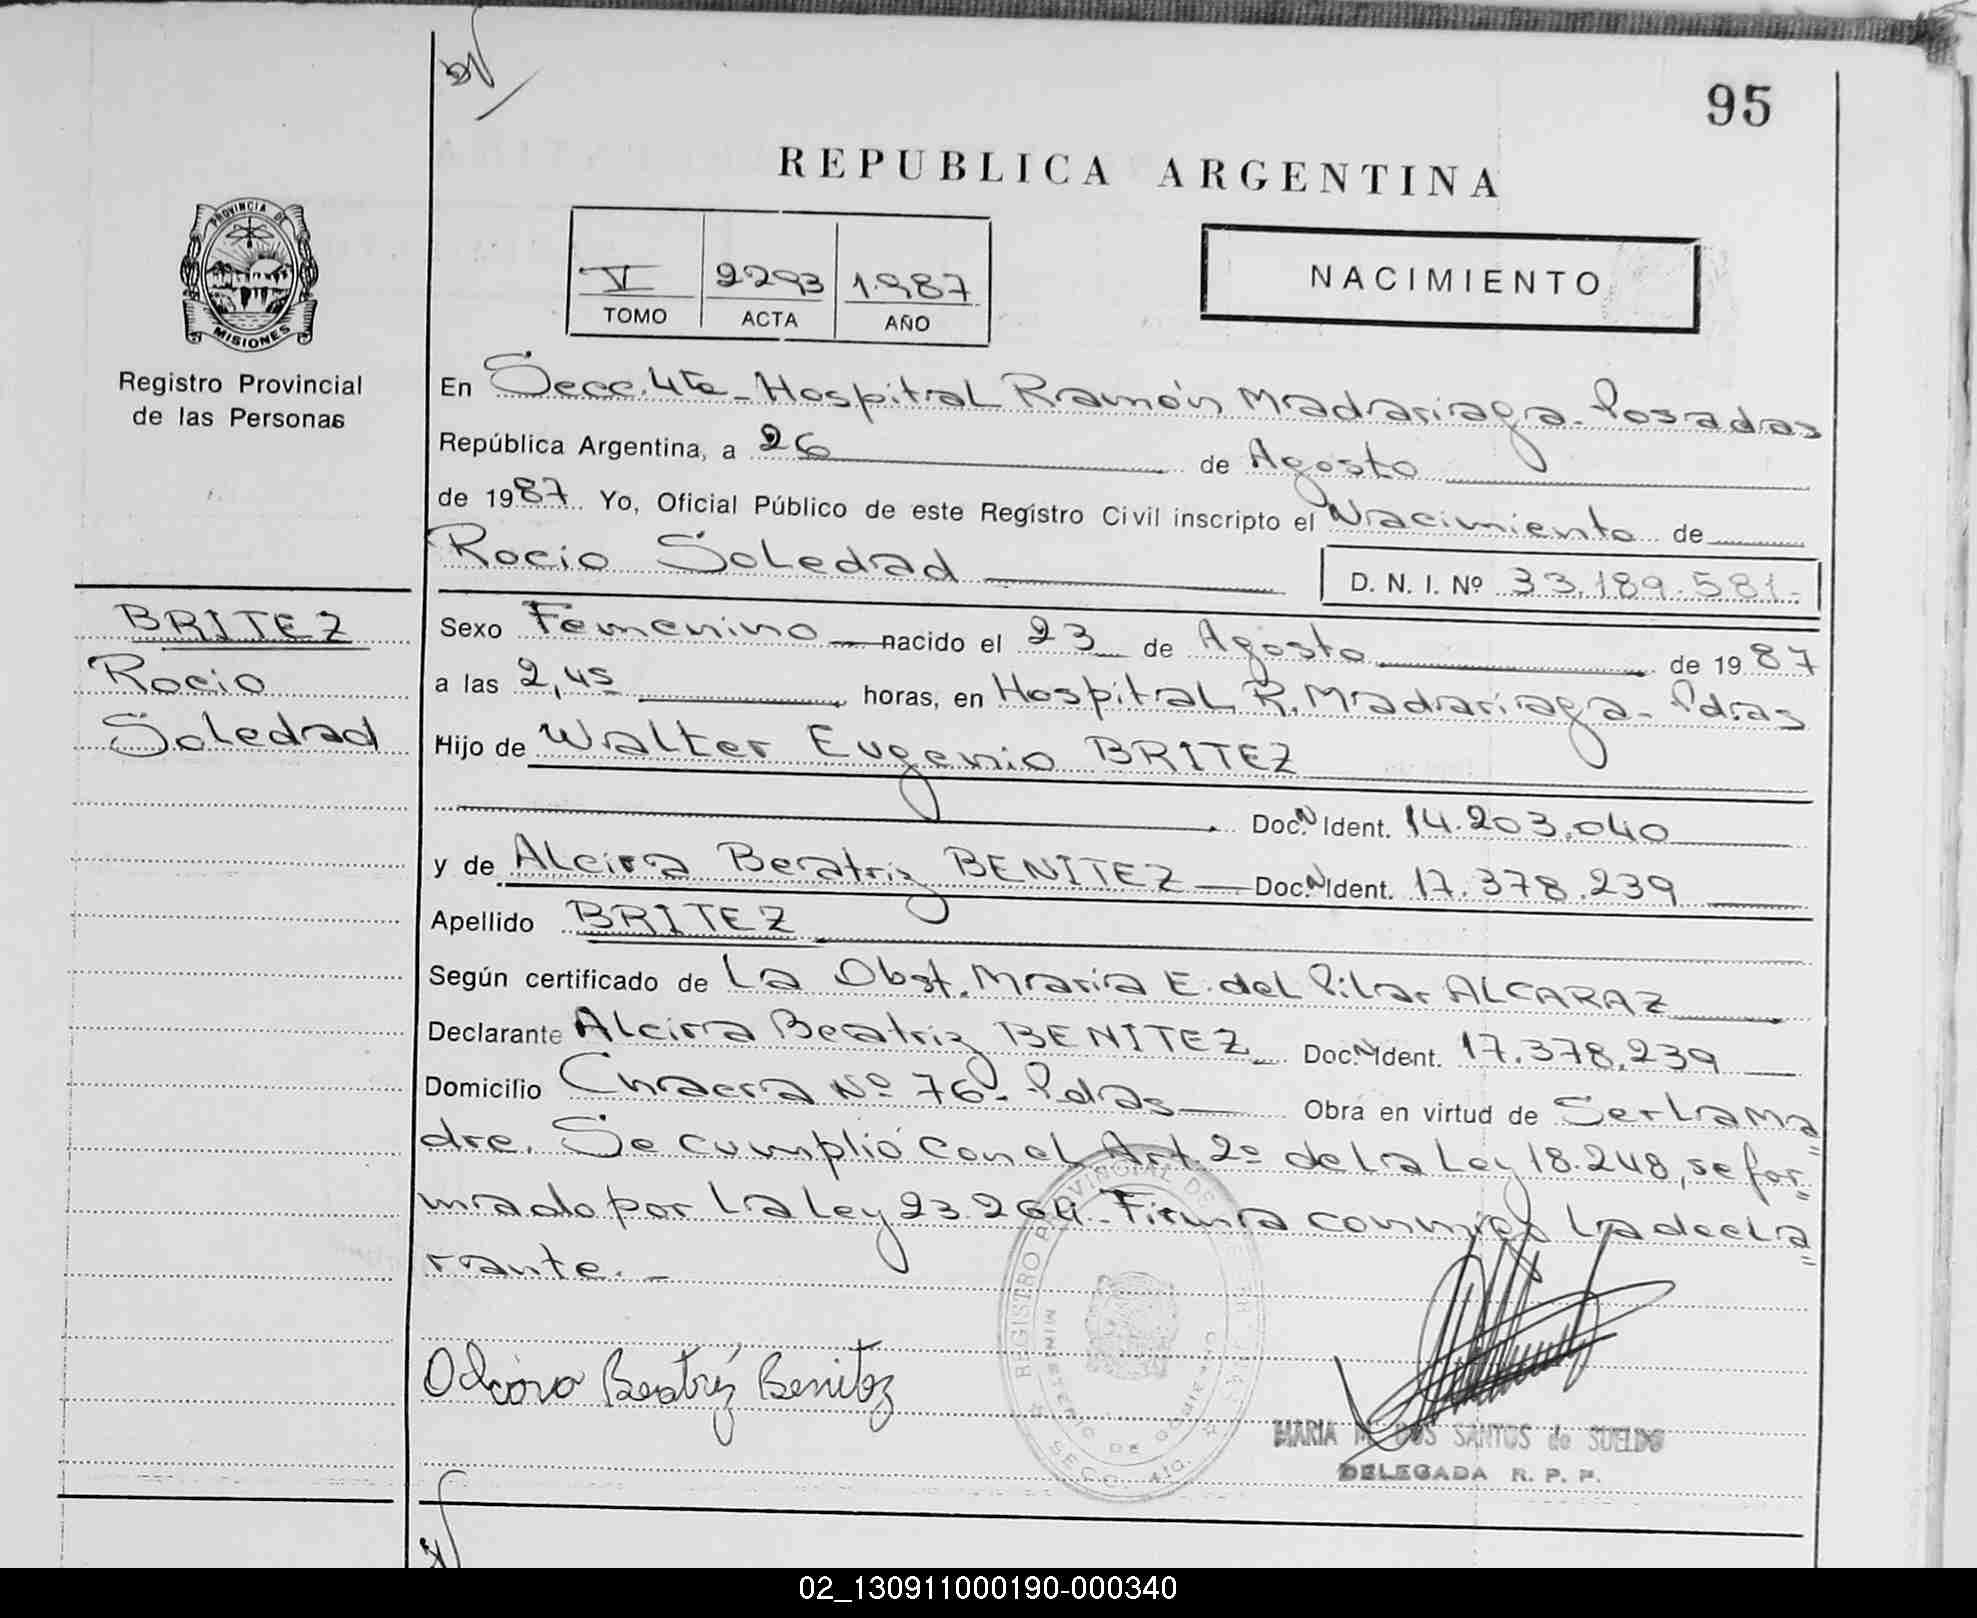 95
REPUBLICA ARGENTINA
PROVINCIA DE
MISIONES
Registro Provincial
de las Personas
V 2293 1.987
TOMO ACTA AÑO
NACIMIENTO
En Secc. 4ta - Hospital Ramón Madariaga - Posadas
República Argentina, a 26 de Agosto
de 1987 Yo, Oficial Público de este Registro Civil inscripto el Nacimiento de
Rocio Soledad D. N. I. Nº 33.189.581.-
BRITEZ
Rocio
Soledad
Sexo Femenino nacido el 23 de Agosto de 1987
a las 2,45 horas, en Hospital R. Madariaga - Pdas
Hijo de Walter Eugenio BRITEZ
Doc. N Ident. 14.203.040
y de Alcira Beatriz BENITEZ Doc. N Ident. 17.378.239
Apellido BRITEZ
Según certificado de La Obst. Maria E. del Pilar ALCARAZ
Declarante Alcira Beatriz BENITEZ Doc. N Ident. 17.378.239
Domicilio Chacra Nº 76 - Pdas Obra en virtud de Ser La Ma=
dre. Se cumplió con el Art. 2º de La Ley 18.248, se for=
mado por La Ley 23.264 - Firma conmigo La decla=
rante. -
REGISTRO PROVINCIAL DE
MINISTERIO DE GOBIERNO
SECC. 4ta.
Alcira Beatriz Benitez
MARIA M. DOS SANTOS de SUELDO
DELEGADA R. P. P.
02_130911000190-000340